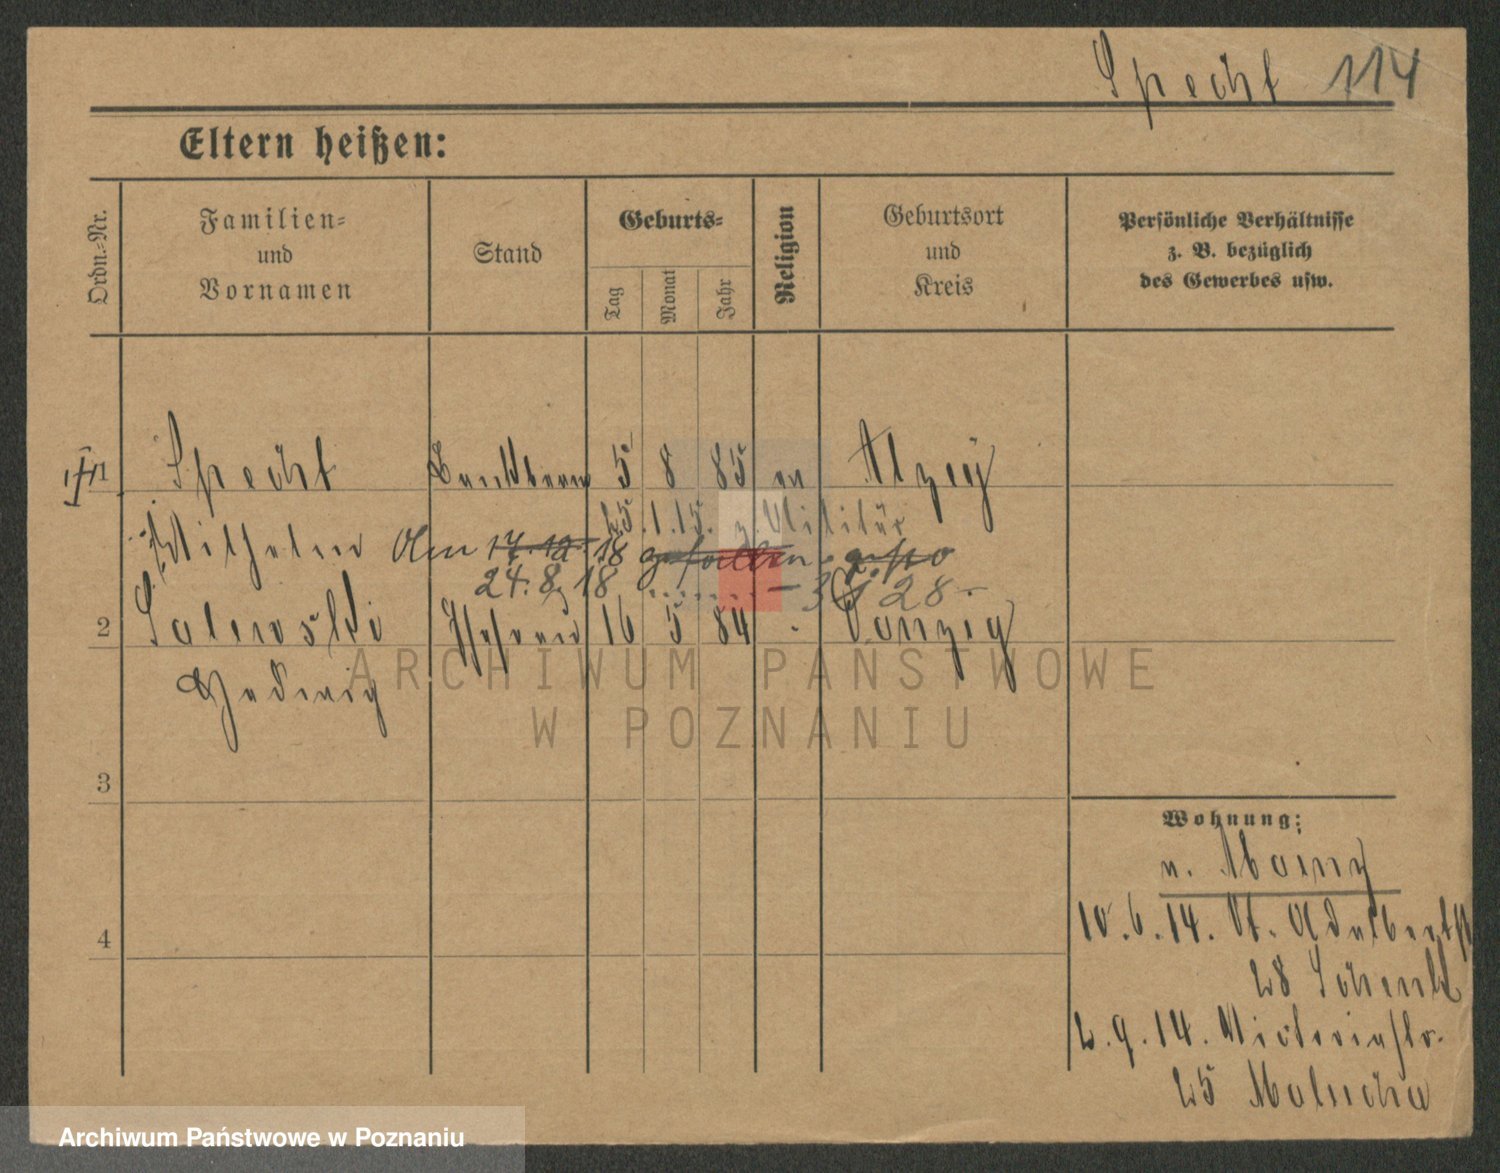 Specht 114
Eltern heißen:
Ordn.-Nr.
Familien-
und
Vornamen
Stand
Geburts-
Tag
Monat
Jahr
Religion
Geburtsort
und
Kreis
Persönliche Verhältnisse
z. B. bezüglich
des Gewerbes usw.
1 Specht 5 8 85 ev Alzey
25.1.15. z. Militär
Wilhelm Am 17.12.18 gefallen
24.8.18 28
2 Salewski Ehefrau 16 5 84 Danzig
Hedwig
3
4
Wohnung:
v. Mainz
10.6.14. St. Adalbertst
28 Schenk
2.9.14. Victoriastr.
25 Malucha
ARCHIWUM PAŃSTWOWE
W POZNANIU
Archiwum Państwowe w Poznaniu